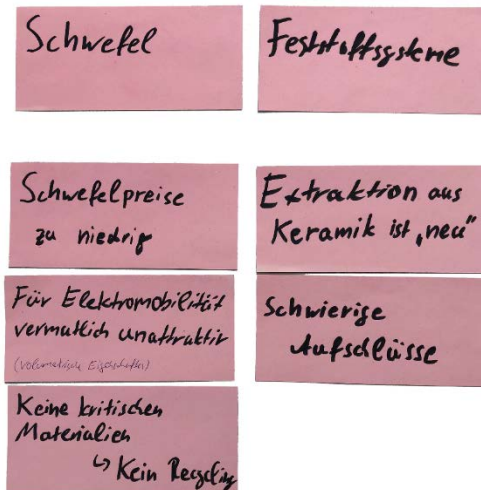 Schwefel
Feststoffsysteme
Schwefelpreise
zu niedrig
Für Elektromobilität
vermutlich unattraktiv
(volumetrische Eigenschaften)
Keine kritischen
Materialien
↳ Kein Recycling
Extraktion aus
Keramik ist „neu"
Schwierige
Aufschlüsse